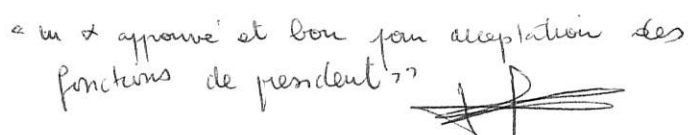 « lu & approuvé et bon pour acceptation des
fonctions de president »